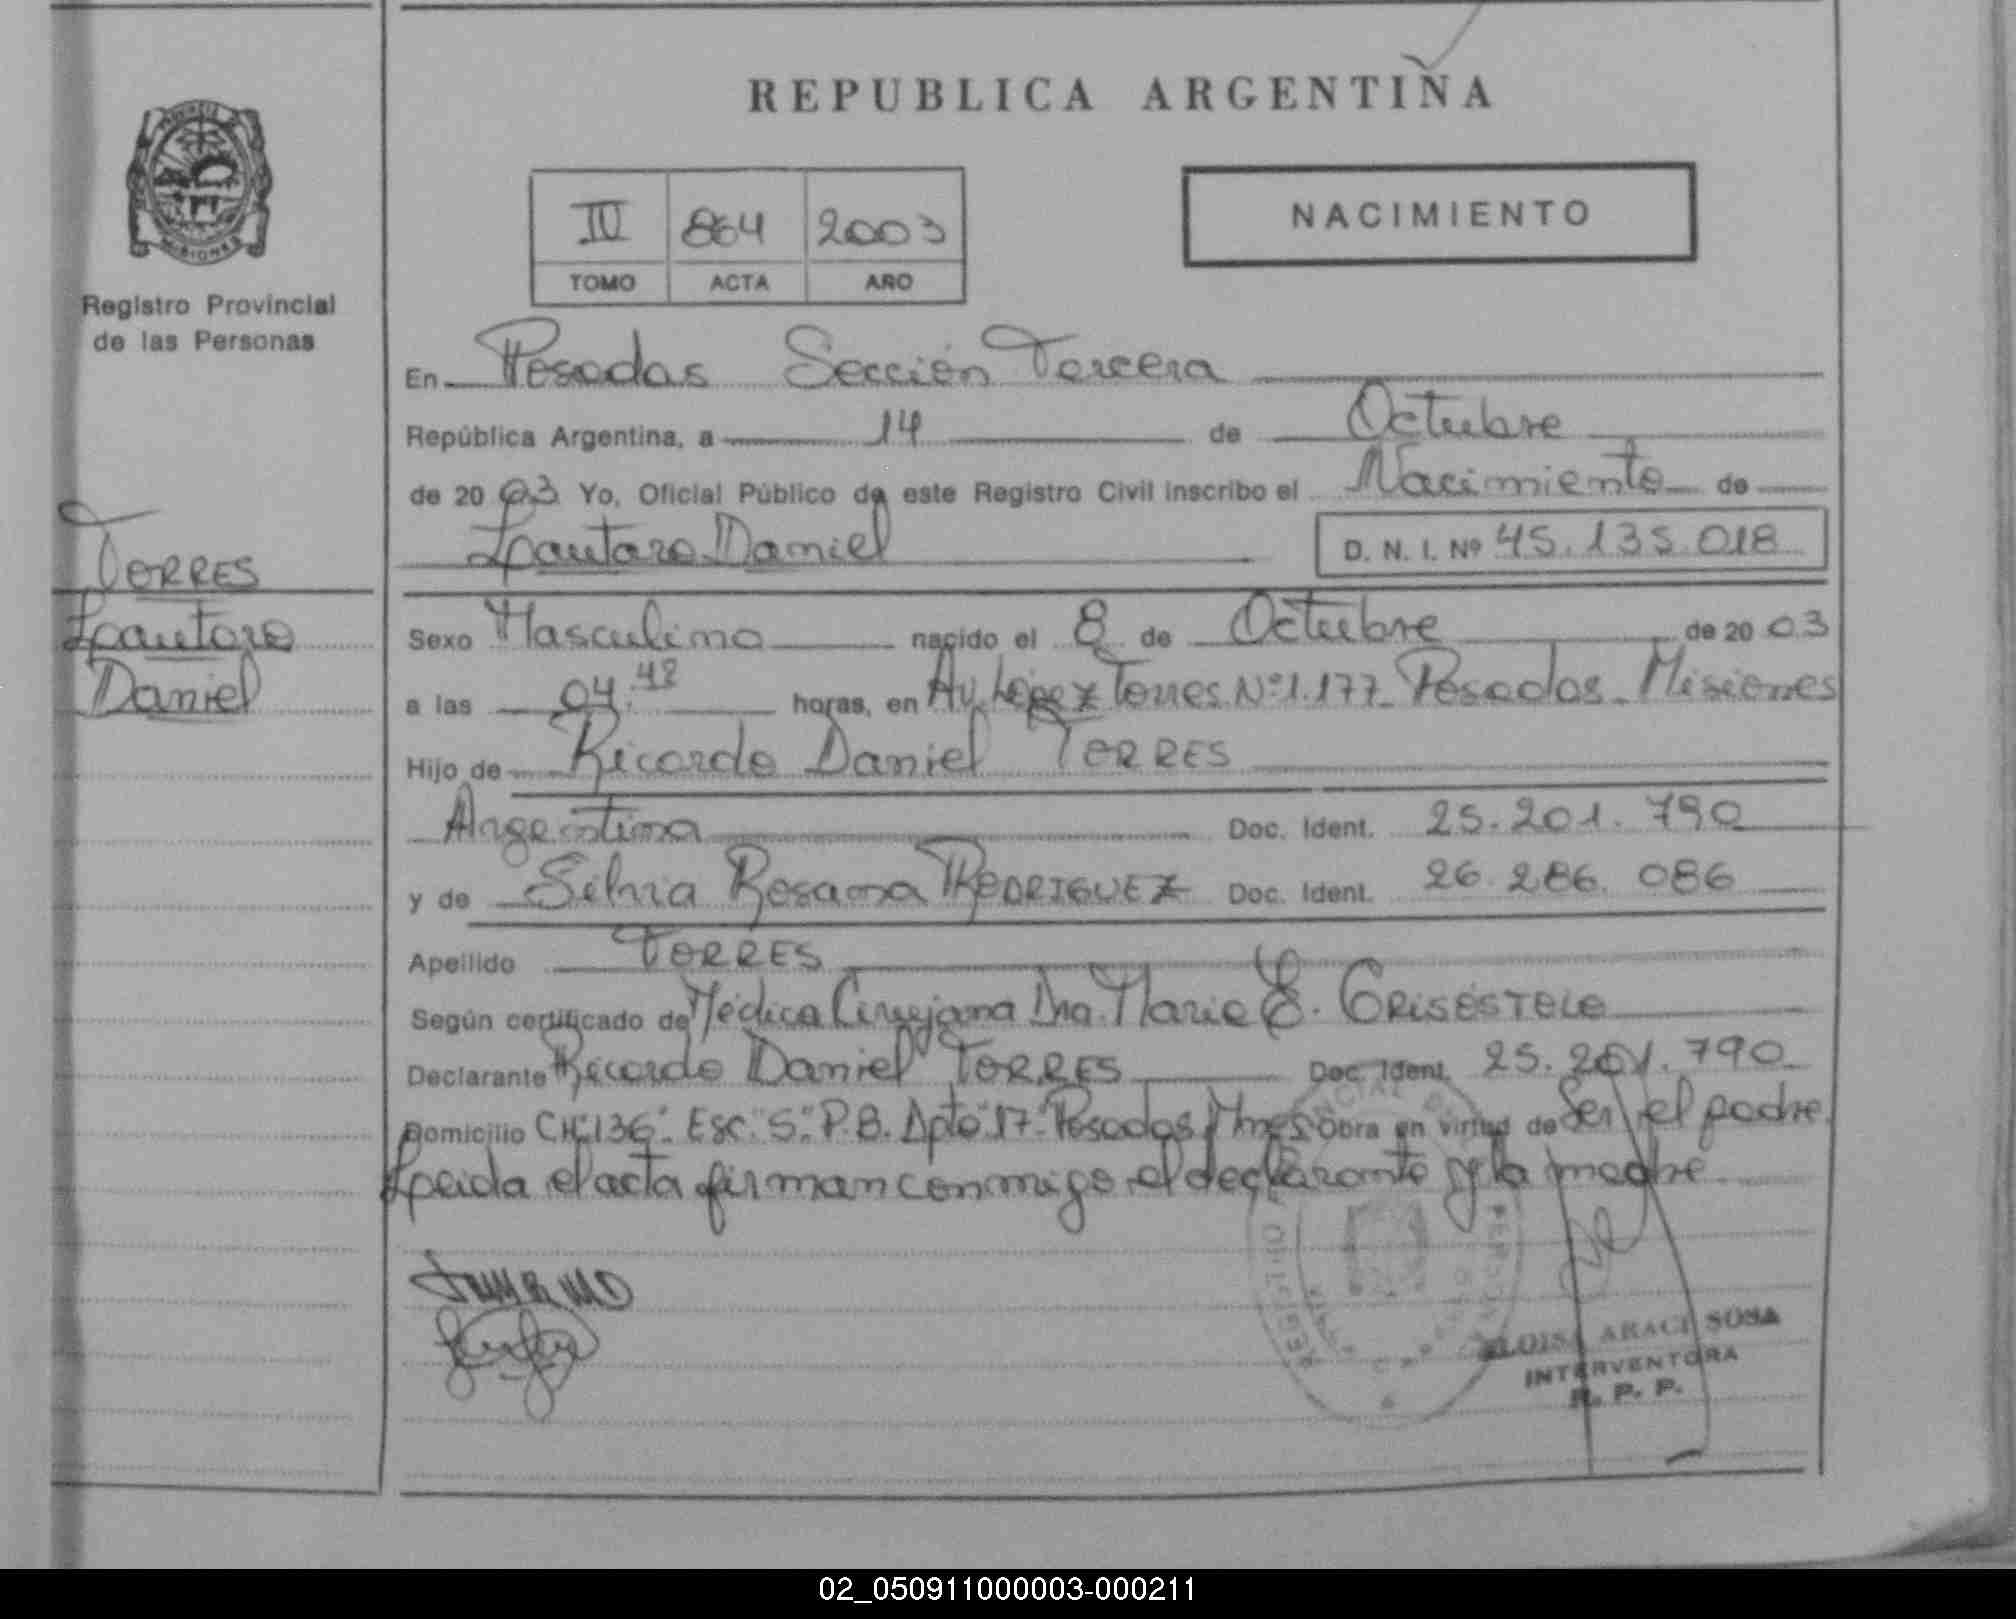 REPUBLICA ARGENTINA
NACIMIENTO
IV 864 2003
TOMO ACTA AÑO
MISIONES
Registro Provincial
de las Personas
En Posadas Sección Tercera
República Argentina, a 14 de Octubre
de 2003 Yo, Oficial Público de este Registro Civil inscribo el Nacimiento de
Lautaro Daniel D. N. I. Nº 45.135.018
TORRES
Lautaro
Daniel
Sexo Masculino nacido el 8 de Octubre de 2003
a las 04:48 horas, en Av. López Torres Nº 1.177 Posadas Misiones
Hijo de Ricardo Daniel TORRES
Argentina Doc. Ident. 25.201.790
y de Silvia Rosana RODRIGUEZ Doc. Ident. 26.286.086
Apellido TORRES
Según certificado de Médica Cirujana Dra. Maria E. GRISÉSTELO
Declarante Ricardo Daniel TORRES Doc. Ident. 25.201.790
Domicilio CH"136" Esc."S" P.B. Dpto"17" Posadas Mnes Obra en virtud de Ser el padre
Leida el acta firman conmigo el declarante y la madre
ARACI SOSA
INTERVENTORA
R. P. P.
02_050911000003-000211